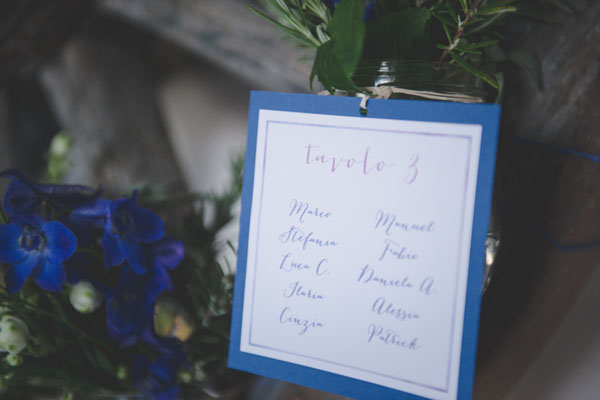 tavolo 3
Marco
Stefania
Luca C.
Ilaria
Cinzia
Manuel
Fabio
Daniela A.
Alessia
Patrick